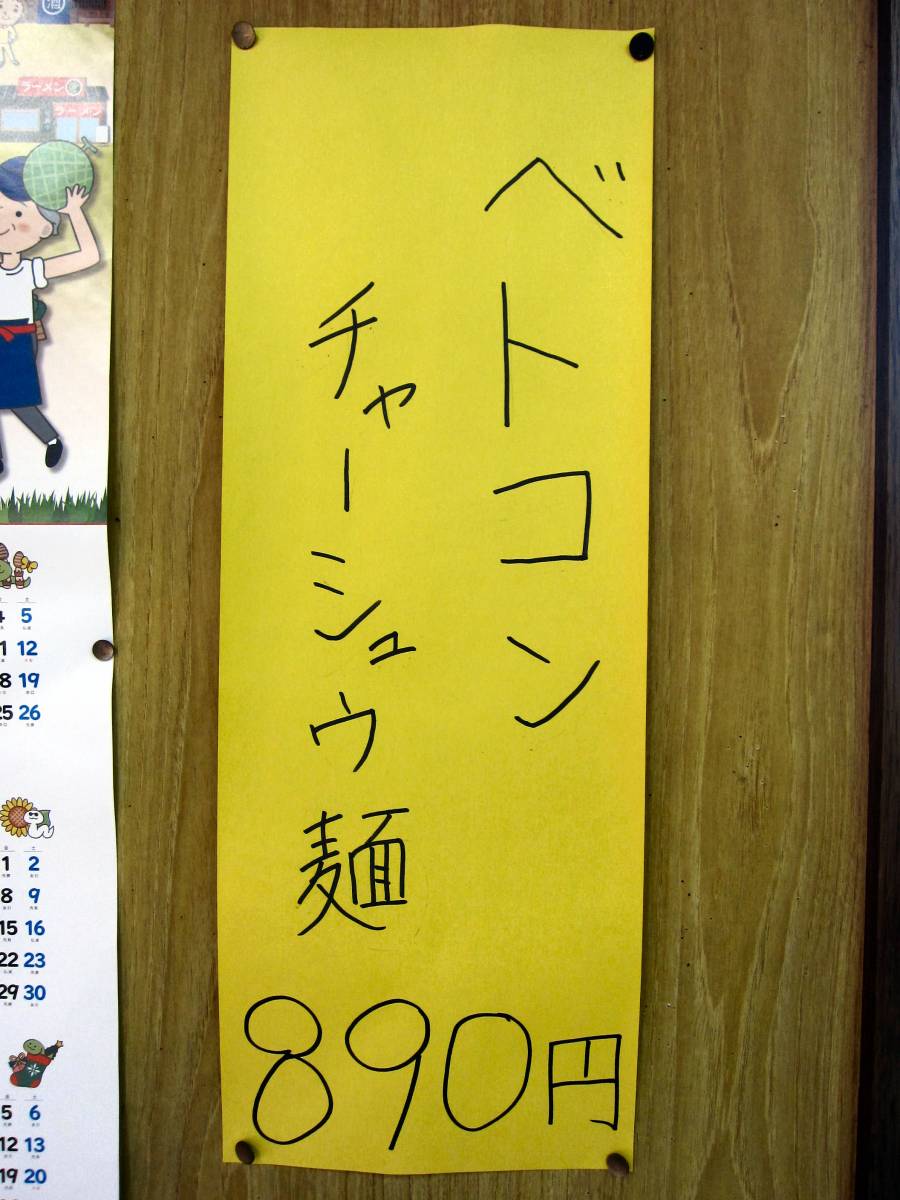 ベトコン
チャーシュウ麺
890円
酒
ラーメン
ラーメン
5
12
18 19
25 26
1 2
8 9
15 16
22 23
29 30
5 6
12 13
19 20